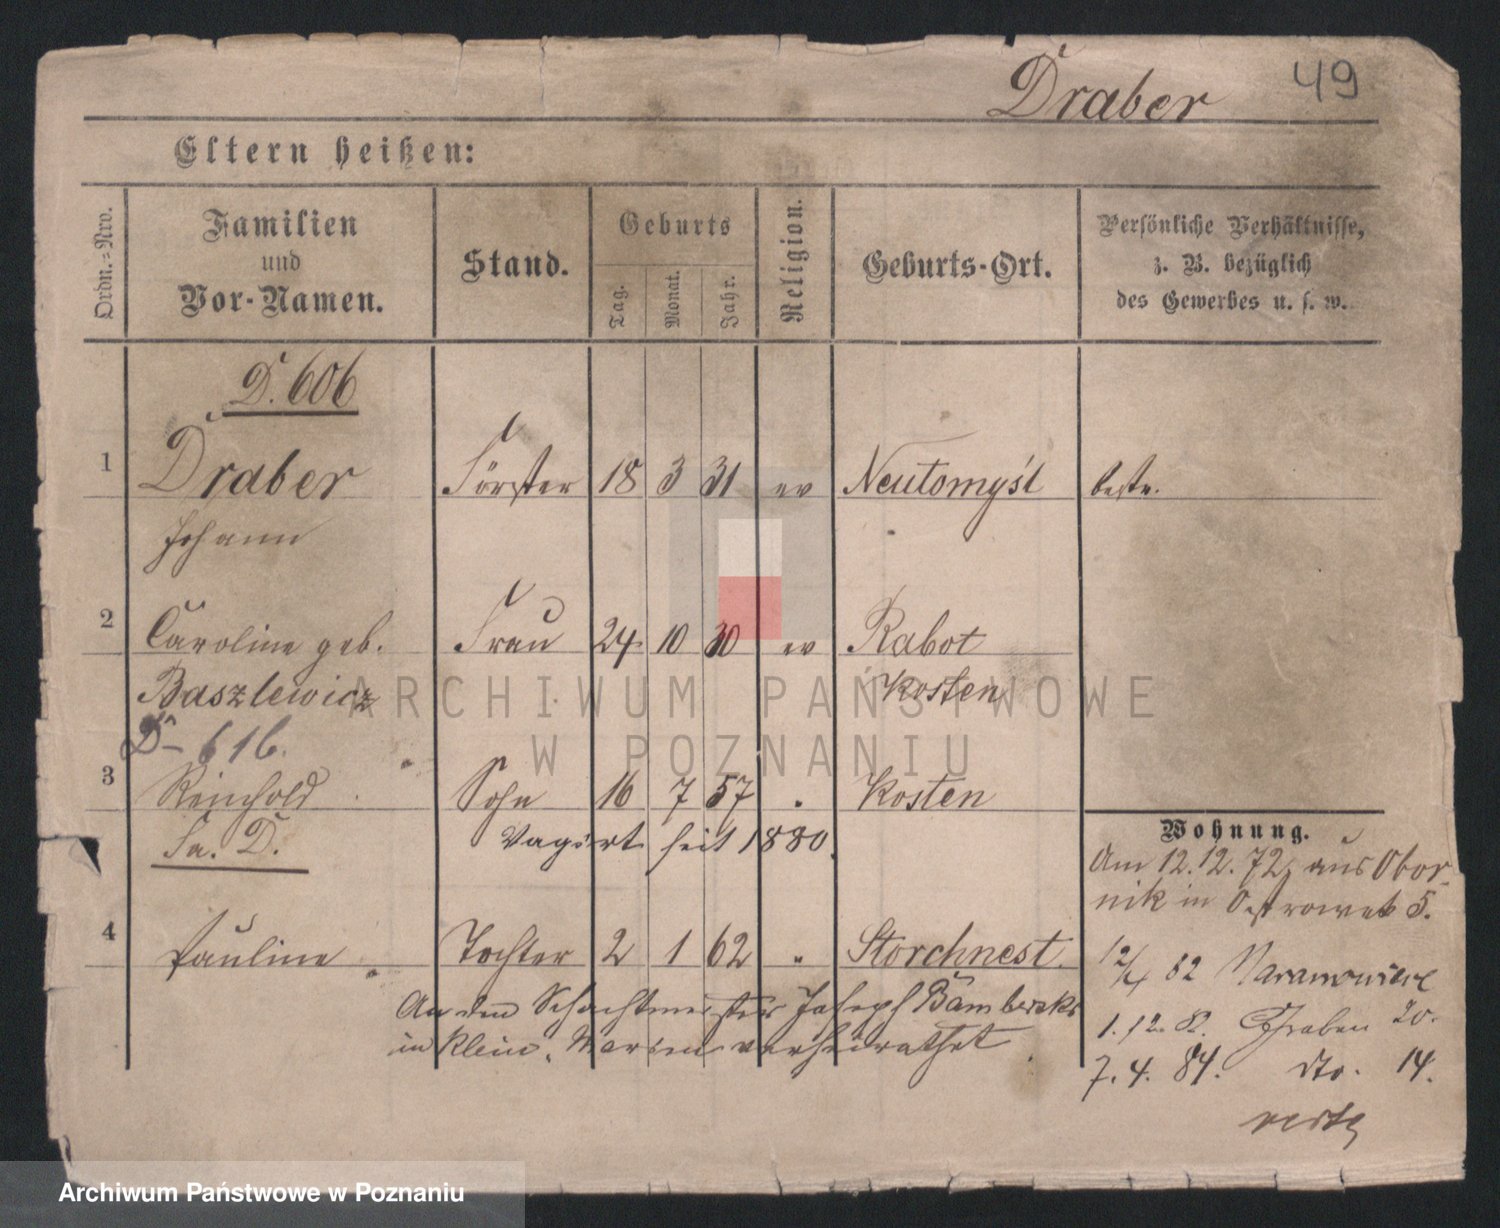 49
Draber
Eltern heißen:
Ordn.=Nro.
Familien
und
Vor-Namen.
Stand.
Geburts
Tag.
Monat.
Jahr.
Religion.
Geburts-Ort.
Persönliche Verhältnisse,
z. B. bezüglich
des Gewerbes u. s. w.
D. 606
1 Draber Förster 18 3 31 ev Neutomyśl bestr.
Johann
2 Caroline geb. Frau 24 10 30 ev Rabot
Baszlewicz Kosten
D- 616.
3 Reinhold Sohn 16 7 57 " Kosten
Fa. D. Vagirt seit 1880.
4 Pauline Tochter 2 1 62 " Storchnest.
An den Schachtmeister Joseph
in Klein verheirathet
Wohnung.
Am 12.12.72, aus Obor-
nik in Ostrowek 5.
12/4 82
1.12.82. Graben 20.
7.4.84. dto. 14.
verte
ARCHIWUM PAŃSTWOWE
W POZNANIU
Archiwum Państwowe w Poznaniu